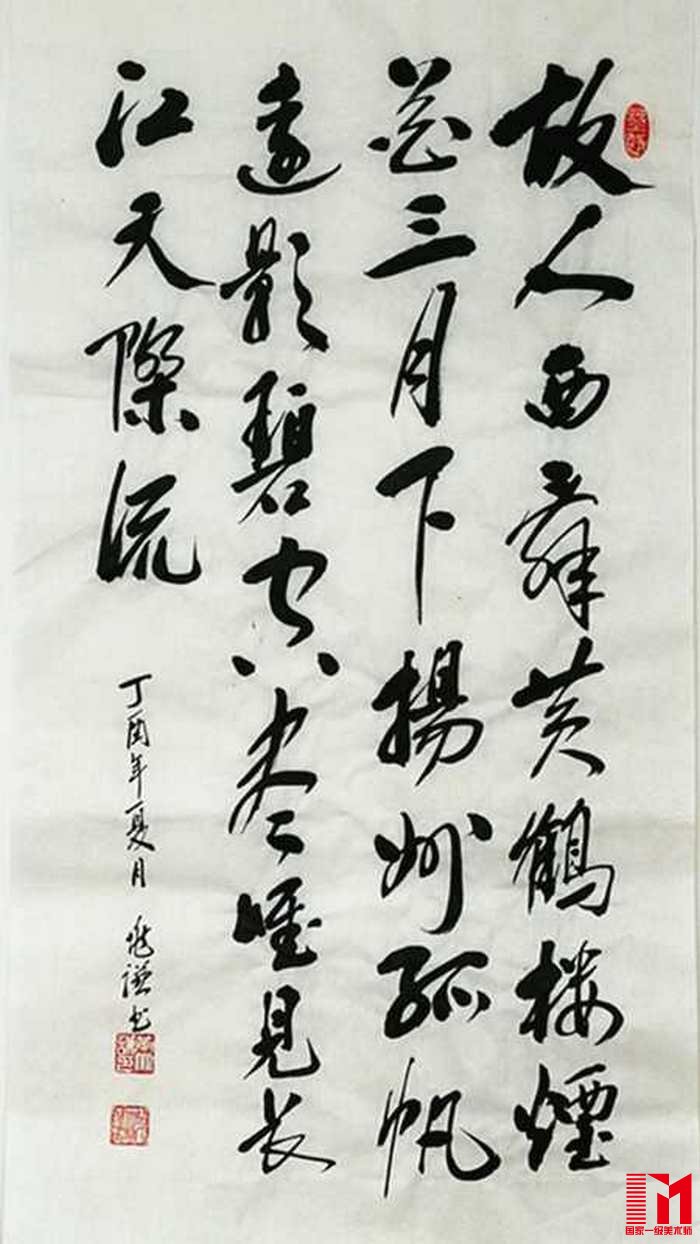 故人西辞黄鹤楼煙
花三月下揚州孤帆
遠影碧空尽唯見长
江天際流
丁酉年夏月 兆谦书
国家一级美术师